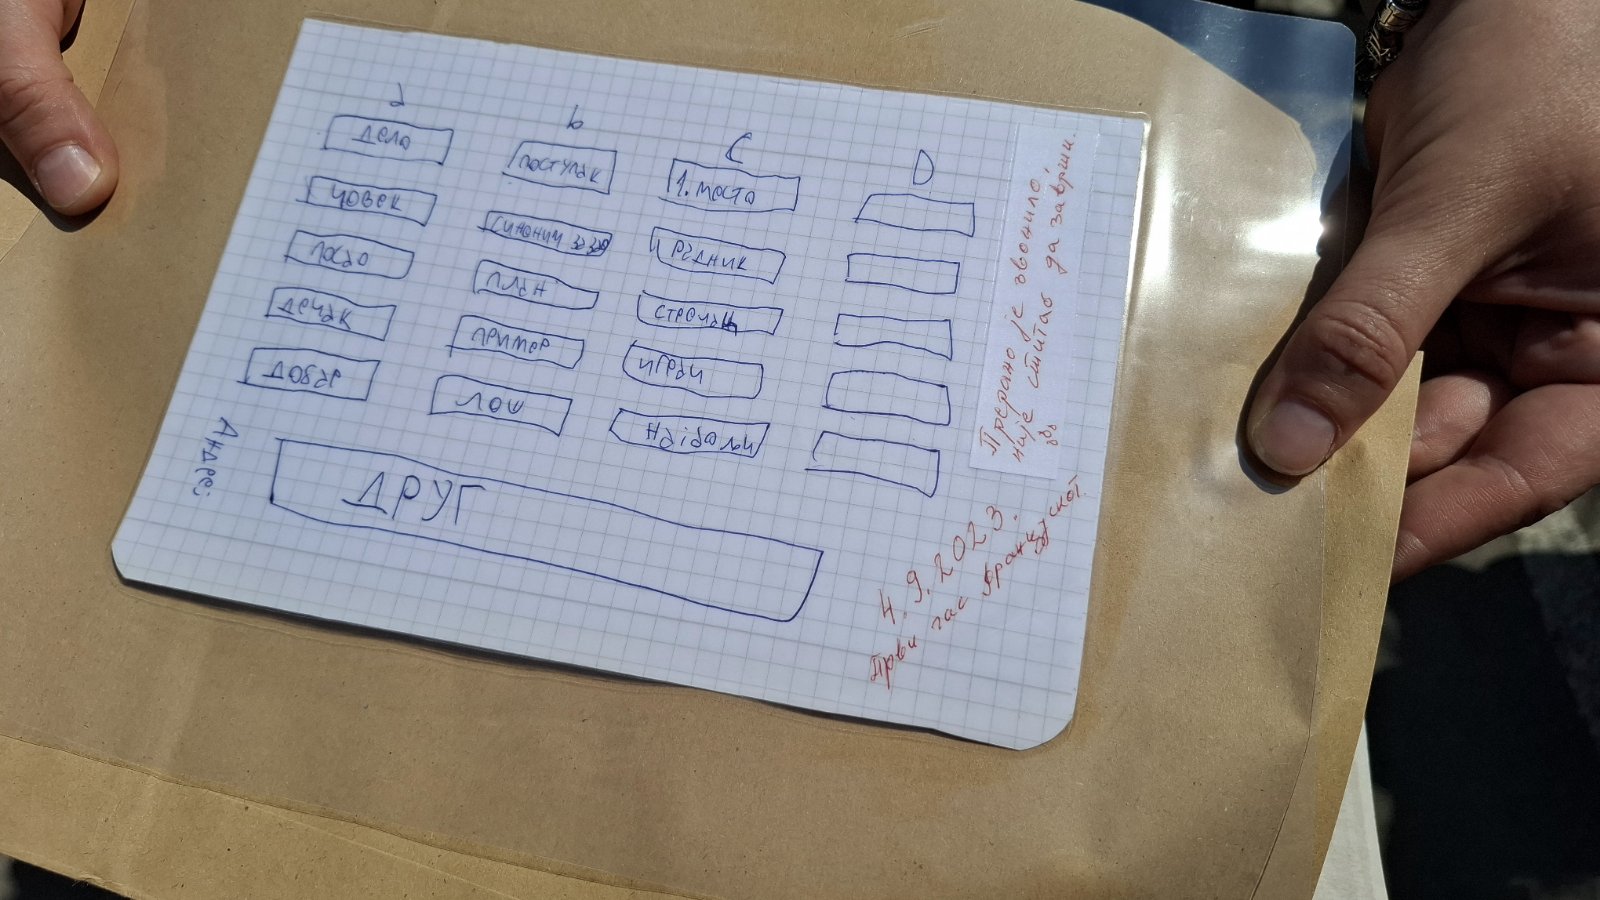 a
дело
човек
посао
дечак
добар
b
поступак
синоним за
план
пример
лош
C
1. место
радник
стрелац
играч
најбољи
D
ДРУГ
Андреј
Прерано је звонило,
није стигао да заврши.
4.9.2023.
Први час француског